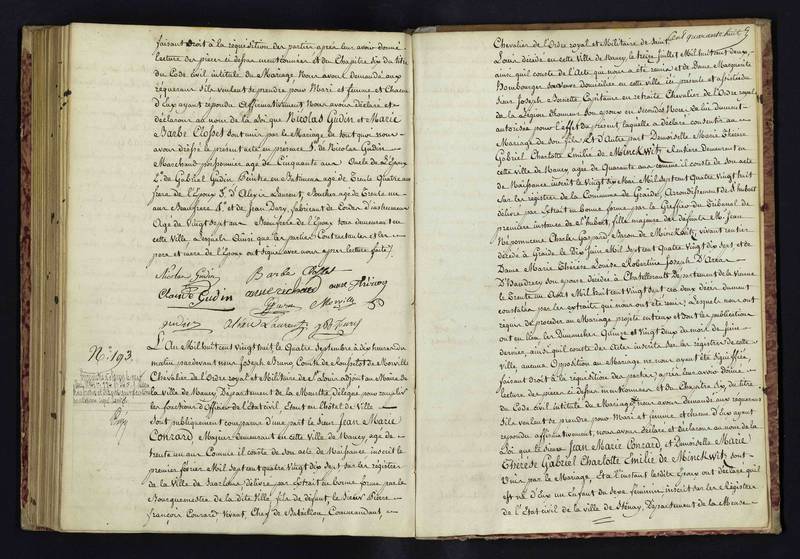 faisant droit à la réquisition des parties après leur avoir donné
lecture des pièces ci-dessus mentionnées et du Chapitre Six du titre
du Code civil intitulé du Mariage, Nous avons demandé aux
requérans s'ils veulent se prendre pour Mari et femme et chacun
d'eux ayant répondu affirmativement, Nous avons déclaré et
déclarons au nom de la loi que Nicolas Gudin et Marie
Barbe Closset sont unis par le Mariage de tout quoi nous
avons dressé le présent acte en présence de Nicolas Gudin
Marchand agé de Cinquante ans Oncle de l'Epoux
de Gabriel Gudin Peintre en Batimens agé de Trente Quatre ans
frère de l'Epoux de Laurent, Boucher agé de Trente un
ans Beaufrère et de Jean Dury, fabricant de Cordes d'instrumens
Agé de Vingt sept ans Beaufrère de l'Epoux tous demeurant en
cette Ville, lesquels Ainsi que les parties Contractantes et les
père et mère de l'Epoux ont signé avec nous après lecture faite
Nicolas Gudin Barbe Closset
Claude Gudin
Morville
Gudin Laurent
N.º 193.
L'An Mil huit cent vingt huit le Quatre Septembre à dix heures du
matin pardevant nous Joseph Bruno, Comte de Morville
Chevalier de l'Ordre royal et Militaire de St Louis adjoint au Maire de
la Ville de Nancy, Département de la Meurthe délégué pour remplir
les fonctions d'Officier de l'Etat civil, Etant en l'hôtel de Ville
Sont publiquement comparus d'une part le Sieur Jean Marie
Conrard Majeur demeurant en cette Ville de Nancy, agé de
trente un ans Comme il conste de son acte de Naissance inscrit le
premier février Mil sept cent quatre vingt dix sept sur les registres
de la Ville de Sarlouis, délivré par extrait en bonne forme par le
Bourguemestre de la dite Ville, fils de défunt, le Sieur Pierre
françois Conrard vivant, Chef de Bataillon, Commandant,
Cent quarante huit
Chevalier de l'Ordre royal et Militaire de Saint
Louis, décédé en cette Ville de Nancy, le treize juillet Mil huit cent deux,
ainsi qu'il conste de l'Acte qui nous a été remis et de Dame Marguerite
Hombourger sa veuve domiciliée en cette ville ici présente et assistée du
Sieur Joseph Capitaine en retraite Chevalier de l'Ordre royal
de la Légion d'honneur Son époux en secondes Noces de lui dument
autorisée pour l'effet du présent, laquelle a déclaré consentir au
Mariage de son fils, Et d'Autre part Demoiselle Marie Thérèse
Gabriel Charlotte Emilie de Minckwitz, Rentière demeurant en
cette Ville de Nancy agée de Quarante ans comme il conste de son acte
de Naissance inscrit le Vingt Six Mai Mil Sept cent Quatre Vingt huit
Sur les registres de la Commune de Graide, Arrondissement de St hubert
délivré par Extrait en bonne forme par le Greffier du Tribunal de
première instance de St hubert, fille majeure des défunts Mr Jean
Népomucène Charles Gaspard Baron de Minckwitz, vivant rentier
décédé à Graide le Dix Juin Mil Sept cent Quatre Vingt dix sept et de
Dame Marie Thérèse Louise Robertine Joseph
son épouse décédée à Chatellerault Département de la Vienne
le Trente un Août Mil huit cent Vingt Sept ces deux décès dument
constatés par les extraits qui nous ont été remis; Lesquels nous ont
requis de procéder au Mariage projeté entr'eux et dont les publications
ont eu lieu les Dimanches Quinze et Vingt deux du mois de Juin
dernier, ainsi qu'il conste des Actes inscrits sur les registres de cette
Ville, aucune Opposition au Mariage ne nous ayant été signifiée,
faisant droit à la réquisition des parties après leur avoir donné
lecture des pièces ci dessus mentionnées et du Chapitre Six, du titre
du Code civil intitulé du Mariage, Nous avons demandé aux requérans
S'ils veulent se prendre pour Mari et femme et chacun d'eux ayant
répondu affirmativement, nous avons déclaré et déclarons au nom de la
Loi que le Sieur Jean Marie Conrard, et Demoiselle Marie
Thérèse Gabriel Charlotte Emilie de Minckwitz sont
Unis par le Mariage, Et à l'instant lesdits Epoux ont déclaré qu'il
est né d'Eux un Enfant du Sexe féminin, inscrit sur les Registres
de l'Etat civil de la Ville de Sténay, Département de la Meuse